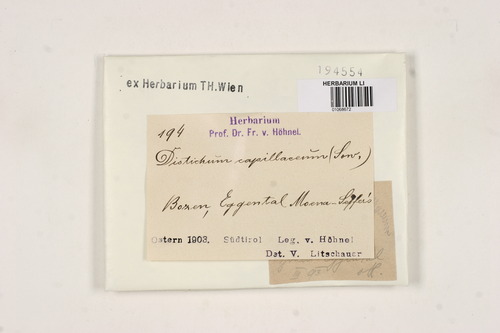 194554
ex Herbarium TH.Wien
HERBARIUM LI
Herbarium
Prof. Dr. Fr. v. Höhnel.
194
Distichum capillaceum (Sw.)
Bozen, Eggental Moena-
Ostern 1903. Südtirol Leg. v. Höhnel
Det. V. Litschauer